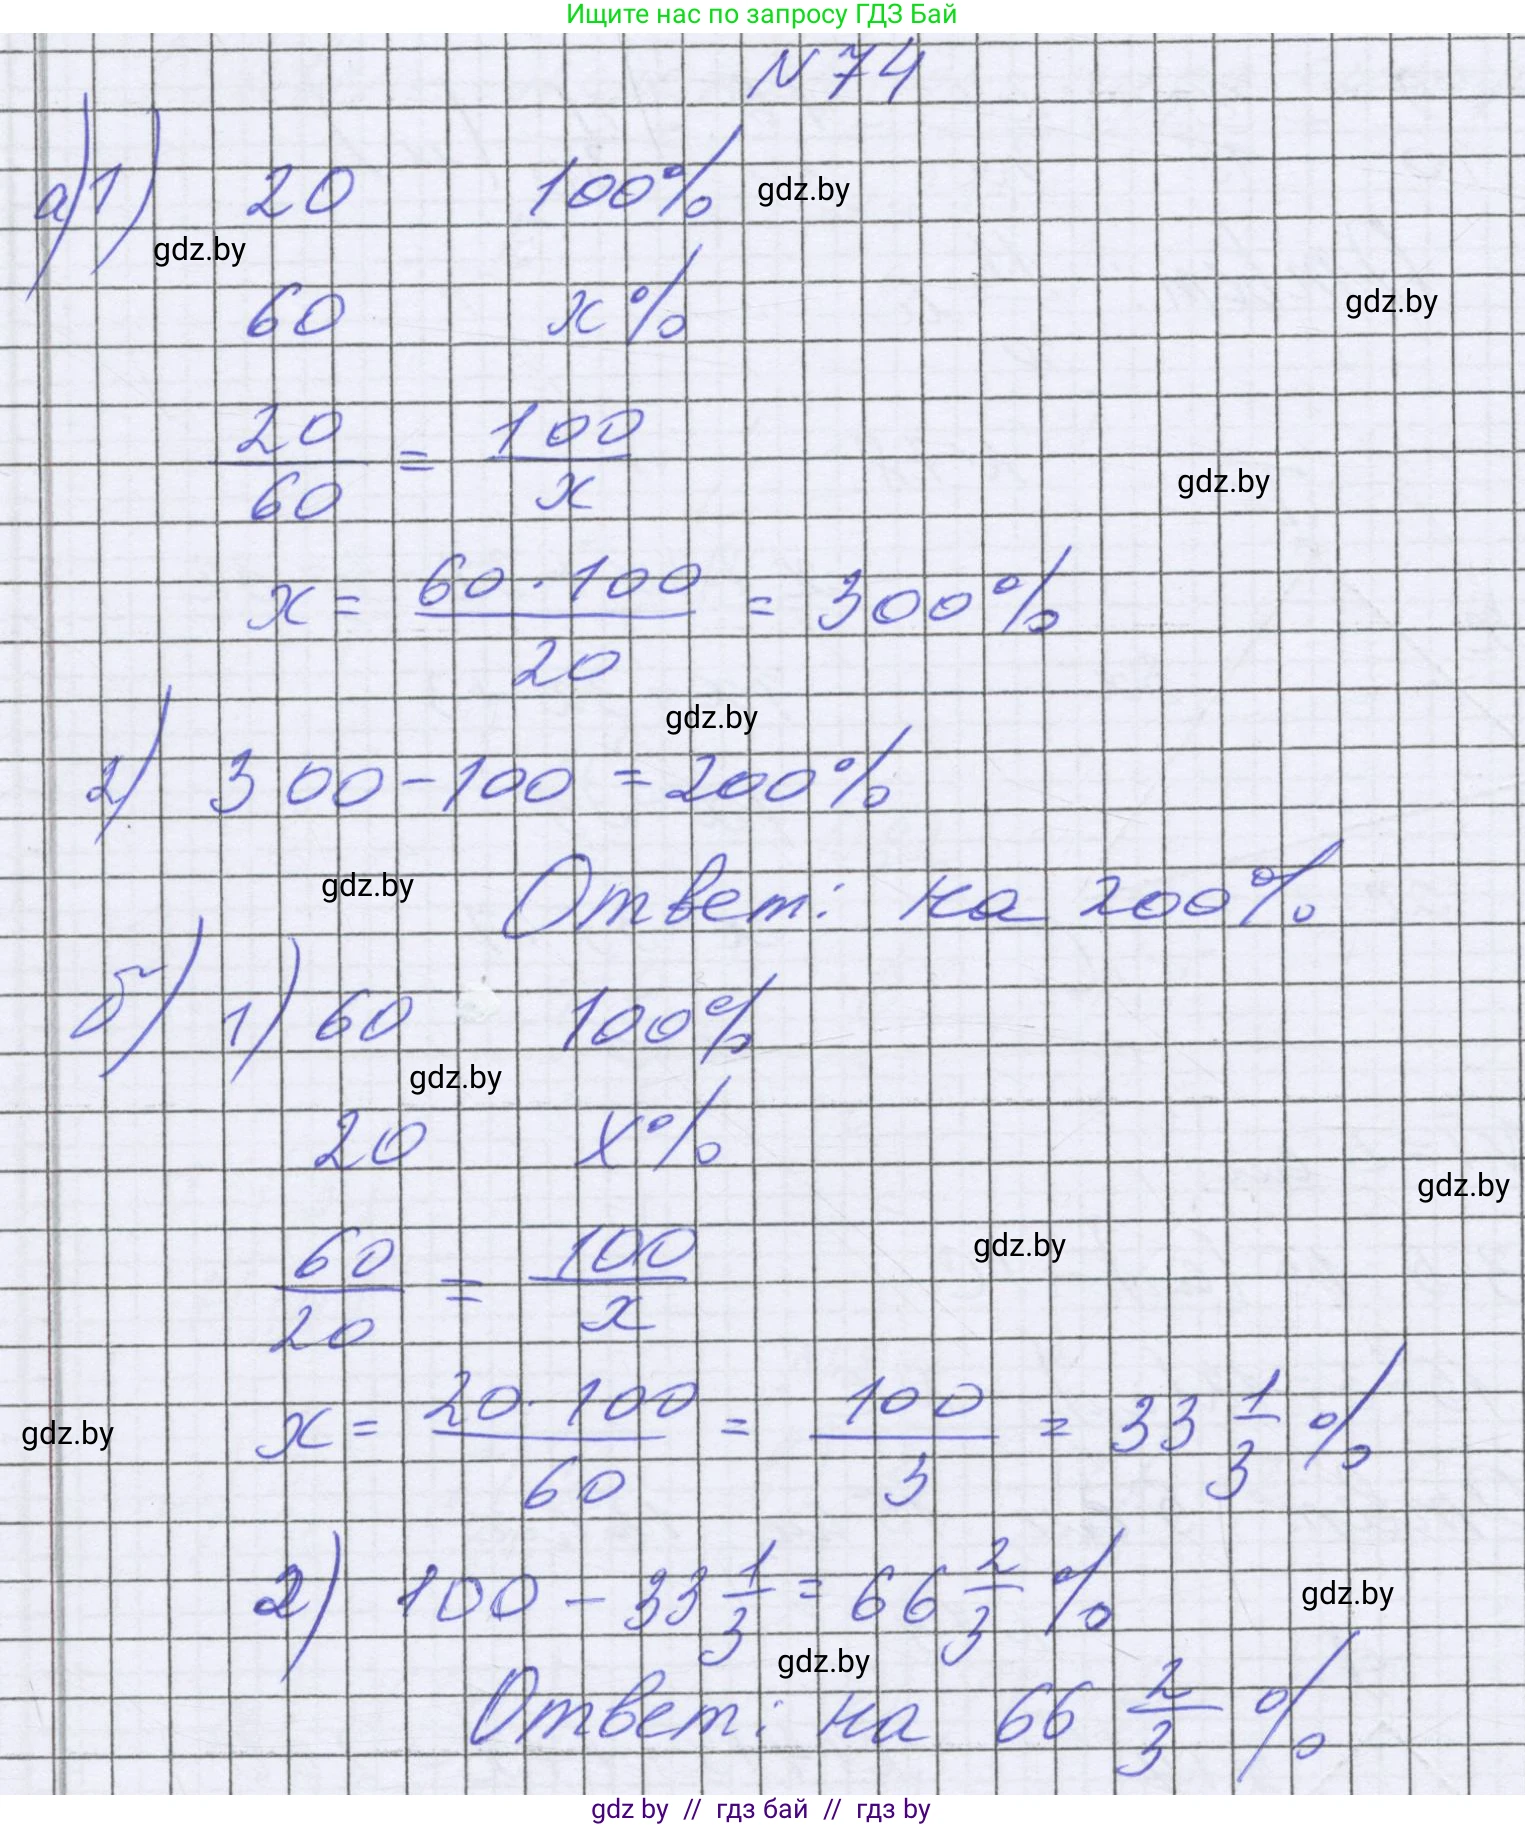 Ищите нас по запросу ГДЗ Бай
№74
а) 1) 20 100% gdz.by
gdz.by
60 x% gdz.by
20/60 = 100/x gdz.by
x = 60·100/20 = 300%
gdz.by
2) 300-100 = 200%
gdz.by Ответ: на 200%
б) 1) 60 100%
gdz.by
20 x%
gdz.by
gdz.by
60/20 = 100/x
x = 20·100/60 = 100/3 = 33 1/3 %
gdz.by
2) 100 - 33 1/3 = 66 2/3 % gdz.by
gdz.by
Ответ: на 66 2/3 %
gdz by // гдз бай // гдз by